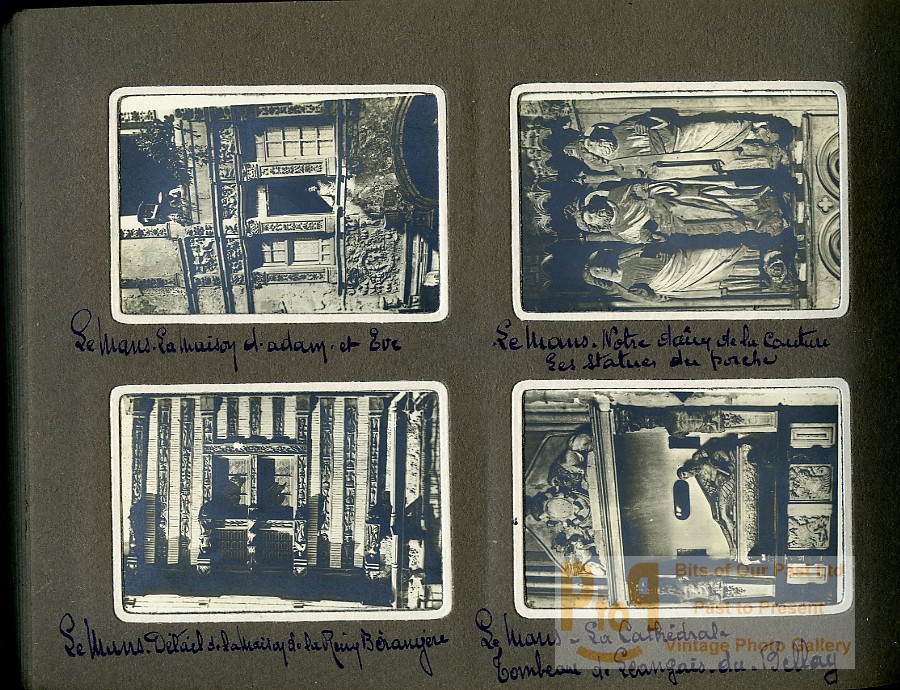 Le Mans. La Maison d'adam. et Eve
Le Mans. Notre dame de la Couture
Les statues du porche
Le Mans. Détail de la Maison de la Reine Bérangère
Le Mans - La Cathédrale
Tombeau de Leangais. du. Bellay
PtoP
Bits of Our Past Ltd
Past to Present
Vintage Photo Gallery